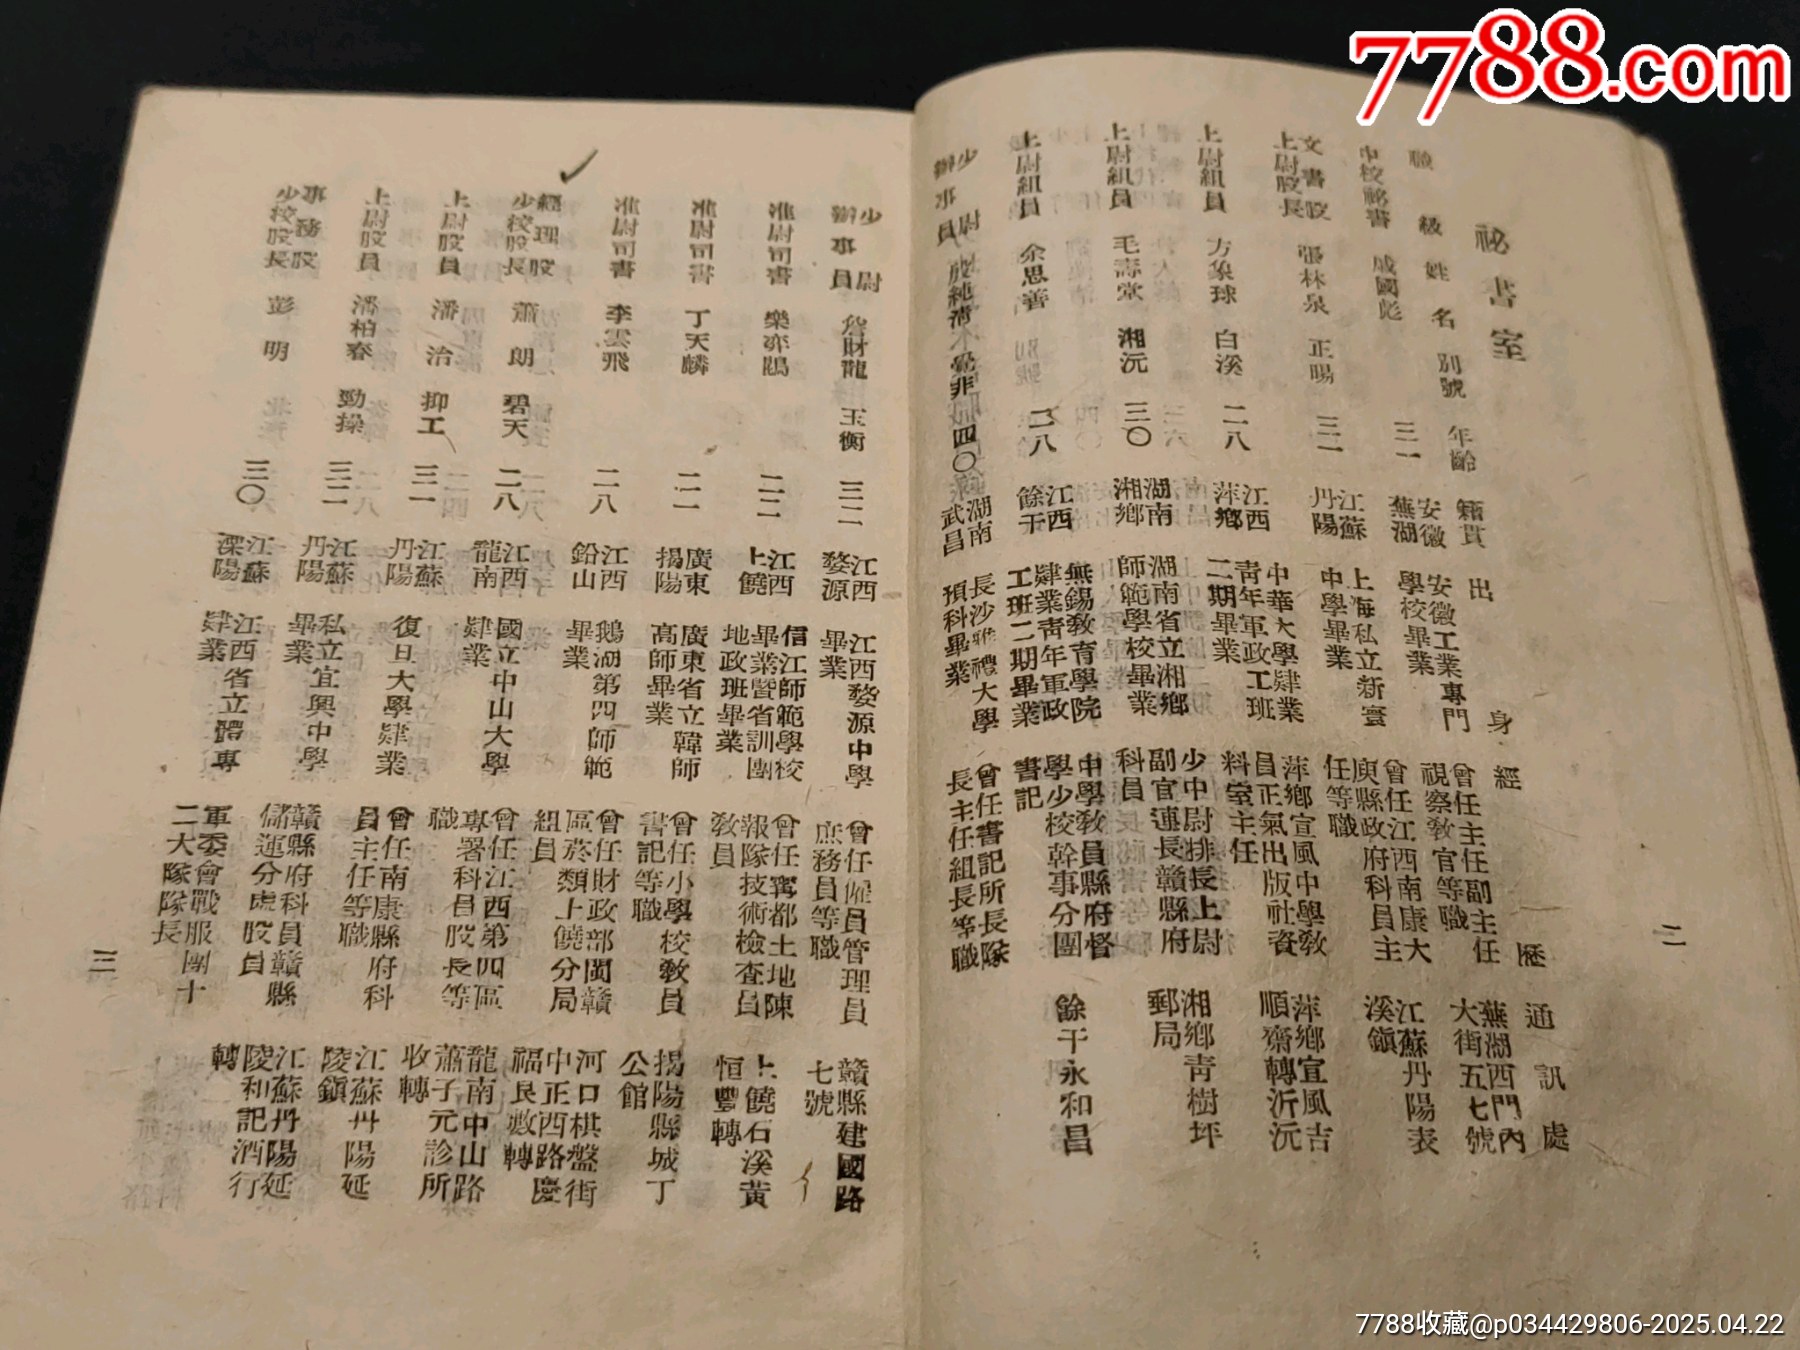 7788.com
祕書室
職級 姓名 別號 年齡 籍貫 出身 經歷 通訊處
中校祕書 戚國彪 三一 安徽蕪湖 安徽工業專門學校畢業 曾任主任副主任視察教官等職 蕪湖西門內大街五七號
文書股上尉股長 張林泉 正暘 三二 江蘇丹陽 上海私立新寰中學畢業 曾任江西南康大庾縣政府科員主任等職 江蘇丹陽表溪鎮
上尉組員 方象球 白溪 二八 江西萍鄉 中華大學肄業青年軍政工班二期畢業 萍鄉宣風中學教員正氣出版社資料室主任 萍鄉宣風吉順齋轉沂沅
上尉組員 毛壽堂 湘沅 三〇 湖南湘鄉 湖南省立湘鄉師範學校畢業 少中尉排長上尉副官連長贛縣府科員 湘鄉靑樹坪郵局
上尉組員 余思善 二八 江西餘干 無錫教育學院肄業靑年軍政工班二期畢業 中學教員縣府督學少校幹事分團書記 餘干永和昌
少尉辦事員 純淸 覺非 四〇 湖南武昌 長沙雅禮大學預科畢業 曾任書記所長隊長主任組長等職
二
少尉辦事員 詹財龍 玉衡 三二 江西婺源 江西婺源中學畢業 曾任僱員管理員庶務員等職 贛縣建國路七號
准尉司書 樂亦鵾 二二 江西上饒 信江師範學校畢業暨省訓團地政班畢業 曾任寗都土地陳報隊技術檢查員教員 上饒石溪黃恒豐轉
准尉司書 丁天麟 二一 廣東揭陽 廣東省立韓師高師畢業 曾任小學校教員書記等職 揭陽縣城丁公館
准尉司書 李雲飛 二八 江西鉛山 鵝湖第四師範畢業 曾任財政部閩贛區菸類上饒分局組員 河口棋盤街中正西路慶福民號轉
經理股少校股長 蕭朗 碧天 二八 江西龍南 國立中山大學肄業 曾任江西第四區專署科員股長等職 龍南中山路蕭子元診所收轉
上尉股員 潘治 抑工 三一 江蘇丹陽 復旦大學肄業 曾任南康縣府科員主任等職 江蘇丹陽延陵鎮
上尉股員 潘柏春 勁操 三二 江蘇丹陽 私立宜興中學畢業 贛縣府科員贛縣儲運分處股員 江蘇丹陽延陵和記酒行轉
事務股少校股長 彭明 三〇 江蘇溧陽 江西省立體專肄業 軍委會戰服團十二大隊隊長
三
7788收藏@p034429806-2025.04.22